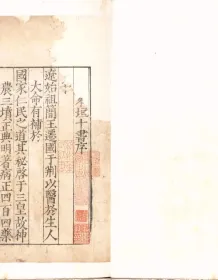 東垣十書序
遼始祖簡王遷國于荆以醫於生人
大命有補於
國家仁民之道其秘啓于三皇故神
農三墳正典明著病正四百四藥